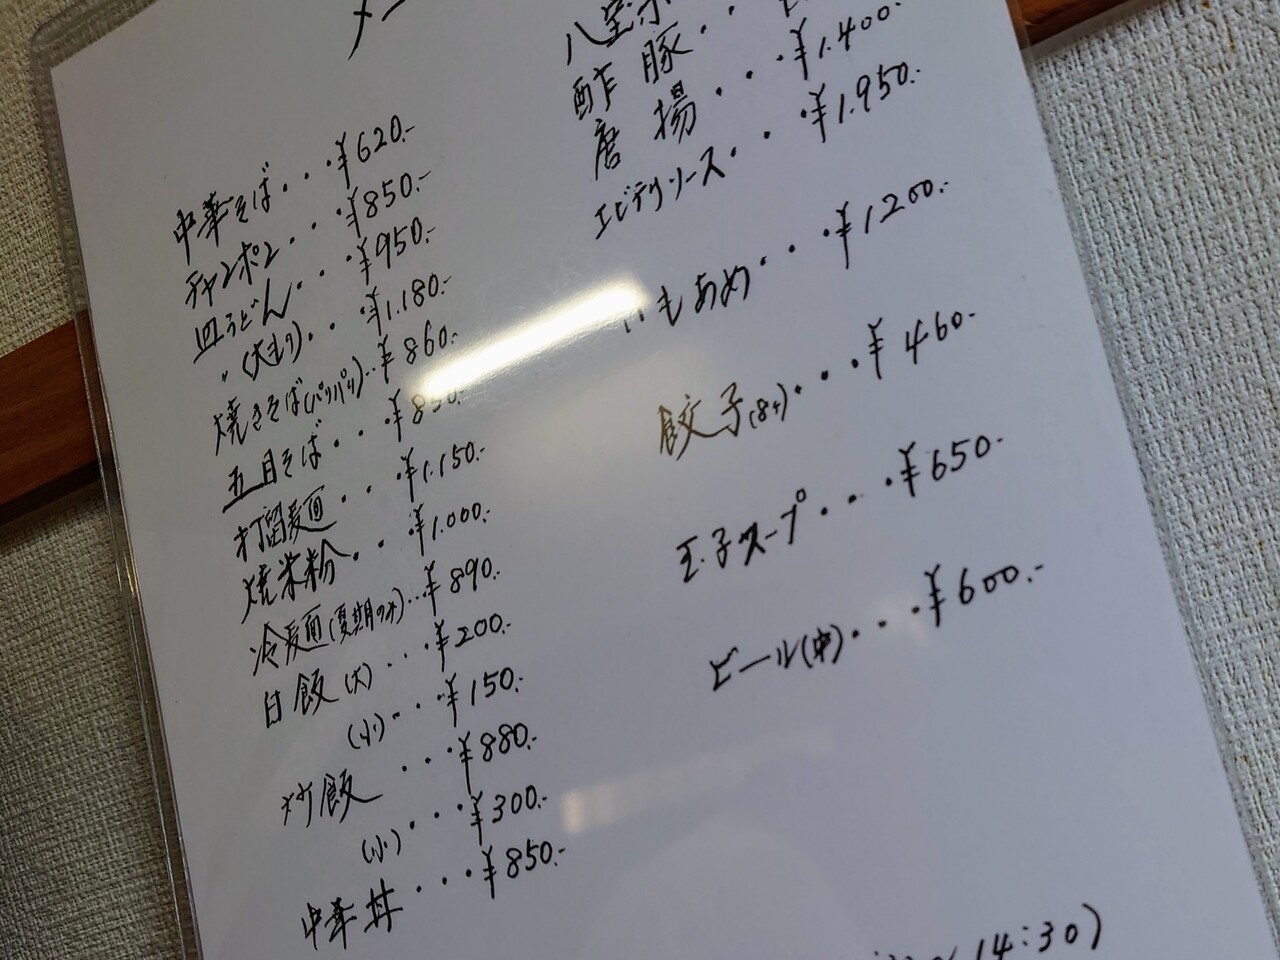 メニ
中華そば・・・¥620.-
チャンポン・・・¥850.-
皿うどん・・・¥950.-
〃(大もり)・・・¥1.180.-
焼きそば(パリパリ)・・¥860.-
五目そば・・・¥850.-
打留麺・・・¥1.150.-
焼米粉・・・¥1.000.-
冷麺(夏期のみ)・・・¥890.-
白飯(大)・・・¥200.-
(小)・・・¥150.-
炒飯・・・¥880.-
(小)・・・¥300.-
中華丼・・・¥850.-
八宝
酢豚・・
唐揚・・・¥1.400.-
エビチリソース・・・¥1.950.-
もあめ・・・¥1200.-
餃子(8ケ)・・・¥460.-
玉子スープ・・・¥650.-
ビール(中)・・・¥600.-
14:30)